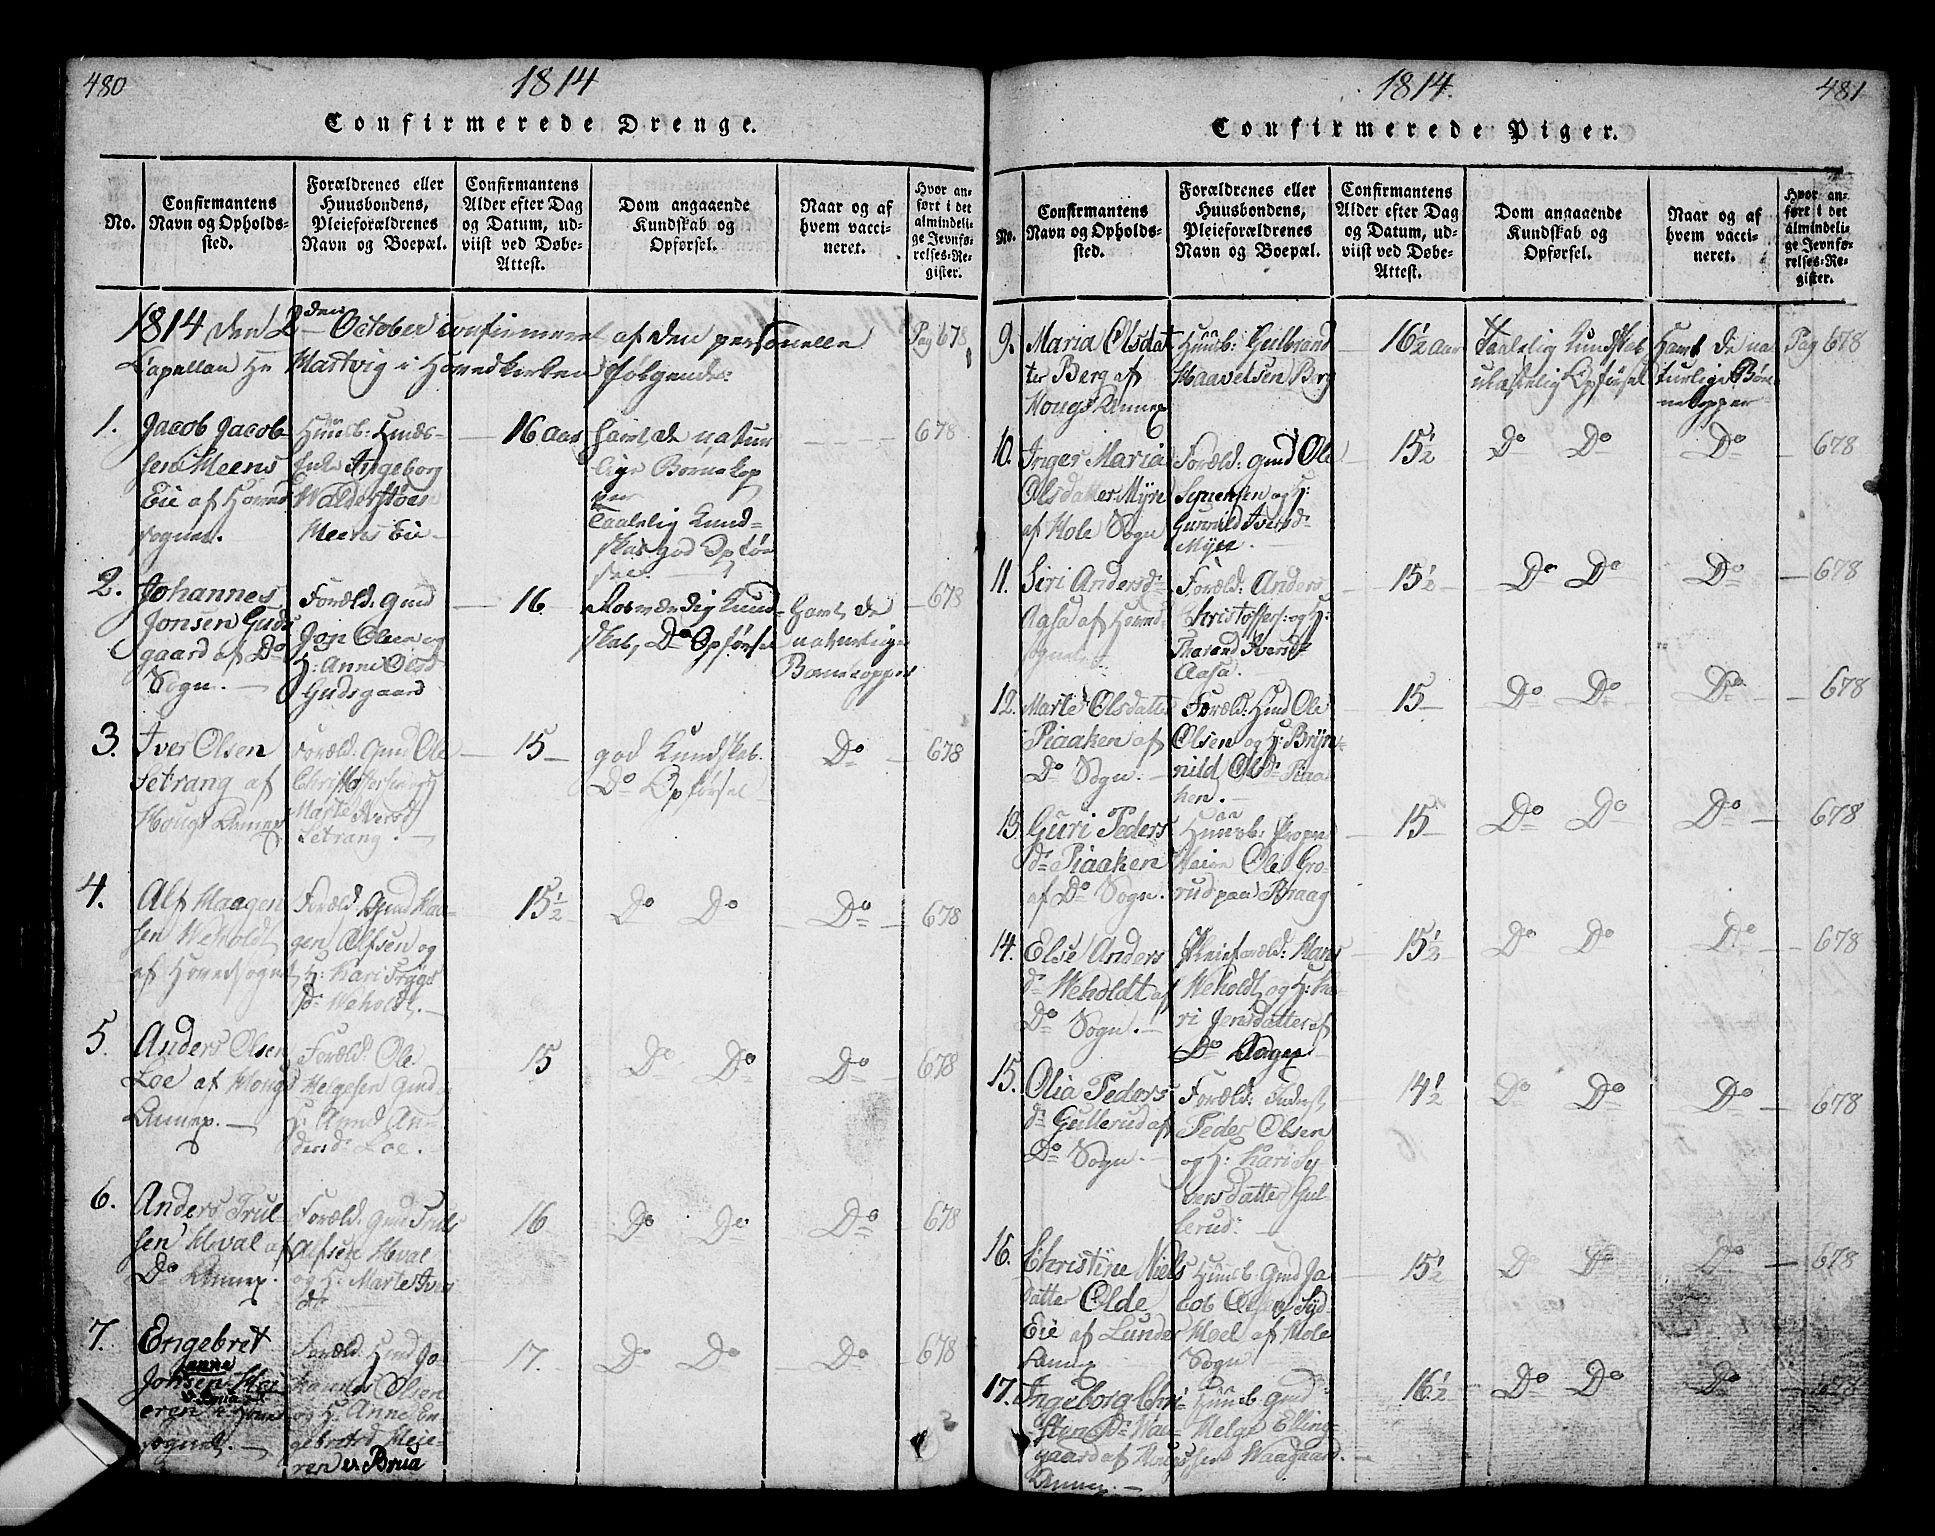 480
1814
Confirmerede Drenge.
No.
Confirmantens
Navn og Opholds-
sted.
Forældrenes eller
Huusbondens,
Pleieforældrenes
Navn og Boepæl.
Confirmantens
Alder efter Dag
og Datum, ud-
viist ved Døbe-
Attest.
Dom angaaende
Kundskab og
Opførsel.
Naar og af
hvem vacci-
neret.
Hvor an-
ført i det
almindeli-
ge Jevnfø-
relses-Re-
gister.
1814 den 2den October confirmeret af den personelle
Capellan Hr Hartvig i Hovedkirken følgende:
Pag 678
1.
Jacob Jacob-
sen Meens
Eie af Hoved
sognet.
Huusb:
Ingeborg
Meens Eie
16 aar
havt de natur
lige Børnekop
per
Taalelig Kund-
skab god Opfør
sel.
678
2.
Johannes
Jonsen Guds
gaard af Do
Sogn.
Foræld: Gmd
Jon Olsen og
H: Anne Olsd
Gudsgaard
16
Nosværdig Kund
skab, Do Opførsel
Havt de
naturlige
Børnekopper
678
3.
Iver Olsen
Setrang af
Hougs Annex
Foræld: Gmd Ole
Christophersen og
Marte Iversd
Setrang.
15
god Kundskab.
Do Opførsel
Do
678
4.
Alf Haagen
sen Weholdt
af Hovedsognet
Foræld: Gmd Haa-
gen Alfsen og
H: Kari Trygs
dr Weholdt.
15 1/2
Do Do
Do
678
5.
Anders Olsen
Loe af Hougs
Annex.
Foræld: Ole
Helgesen Gmd
H: Anne An-
dersdr Loe.
15
Do Do
Do
678
6.
Anders Trul-
sen Hval af
Do Annex.
Foræld: Gmd Truls
Alfsen Hval
og H: Marte Ivers
dr
16
Do Do
Do
678
7.
Engebret
Johansen Mei
eren v. Brua
sognet.
Foræld: Hmd Jo-
hannes Olsen
og H: Anne En
gebretsd Meie-
ren v. Brua
17.
Do Do
Do
678
1814.
481
Confirmerede Piger.
No.
Confirmantens
Navn og Opholds-
sted.
Forældrenes eller
Huusbondens,
Pleieforældrenes
Navn og Boepæl.
Confirmantens
Alder efter Dag
og Datum, ud-
viist ved Døbe-
Attest.
Dom angaaende
Kundskab og
Opførsel.
Naar og af
hvem vacci-
neret.
Hvor an-
ført i det
almindeli-
ge Jevnfø-
relses-Re-
gister.
9.
Maria Olsdat
ter Berg af
Hougs Annex
Huusb: Gulbrand
Haavelsen Berg
16 1/2 aar
Taalelig Kundskab
ulastelig Opførsel
Havt de na
turlige Bør
nekopper
Pag 678
10.
Inger Maria
Olsdatter Myre
af Hole Sogn
Foræld: Gmd Ole
Syversen og H:
Gunnild Iversdr
Myre.
15 1/2
Do Do
Do
678
11.
Siri Andersdr
Aasa af Hoved
sognet
Foræld: Anders
Christoffers: og H:
Marand Iversdr
Aasa.
15 1/2
Do Do
Do
678
12.
Marte Olsdatter
Piaaken af
Do Sogn.
Foræld: Hmd Ole
Olsen og H: Bryn-
nild Olsdr Piaa
ken.
15
Do Do
Do
678
13.
Guri Peders
dr Piaaken
af Do Sogn.
Huusb:
Ole Gro-
rud paa Braag
15
Do Do
Do
678
14.
Else Anders
dr Weholdt af
Do Sogn.
Pleieforæld: Hans
Weholdt og H: Ka
ri Jensdatter af
Do Annex
15 1/2
Do Do
Do
678
15.
Olia Peders
dr Gullerud af
Do Sogn.
Foræld: Inderst,
Peder Olsen
og H: Kari Sy
versdatter Gul-
lerud
4 1/2
Do Do
Do
678
16.
Christine Niels
datter Olde
Eie af Lunder
Annex
Huusb: Gmd Ja
cob Olsen Syd
Moe af Hole
Sogn
15 1/2
Do Do
Do
678
17.
Ingeborg Chri-
stensdr Waa-
gaard af Hougs
Annex.
Huusb: Gmd
Helge Elling-
sen Waagaard.
16 1/2
Do Do
Do
678